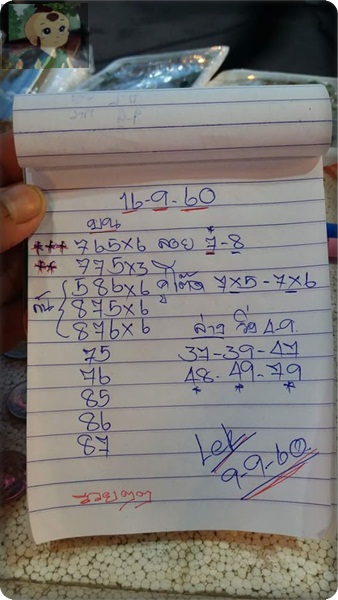 16-9-60
บน
*** 765×6 ลอย 7-8
** 775×3
586×6 คู่โต๊ด 7×5-7×6
875×6
876×6
ล่าง วิ่ง 4-9.
75 37-39-47
76 48-49-79
85 * * *
86
87
Lek
9-9-60